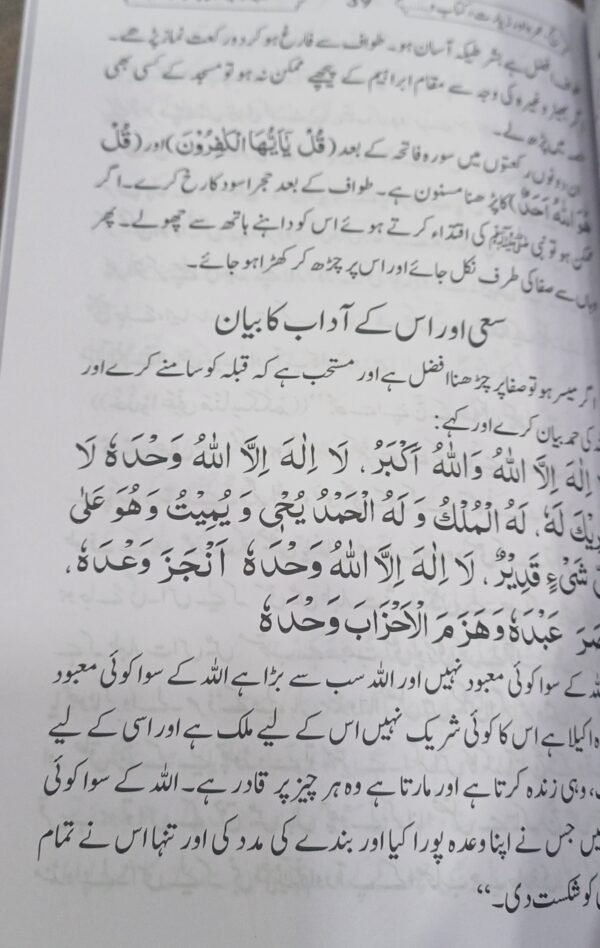 39
طواف افضل ہے بشرطیکہ آسان ہو۔ طواف سے فارغ ہو کر دو رکعت نماز پڑھے۔
اگر بھیڑ وغیرہ کی وجہ سے مقام ابراہیم کے پیچھے ممکن نہ ہو تو مسجد کے کسی بھی
میں پڑھ لے۔
ان دونوں رکعتوں میں سورہ فاتحہ کے بعد (قُلْ يَآيُّهَا الْكٰفِرُوْنَ) اور (قُلْ
هُوَ اللهُ اَحَدٌ) کا پڑھنا مسنون ہے۔ طواف کے بعد حجر اسود کا رخ کرے۔ اگر
ممکن ہو تو نبی ﷺ کی اقتداء کرتے ہوئے اس کو داہنے ہاتھ سے چھولے۔ پھر
وہاں سے صفا کی طرف نکل جائے اور اس پر چڑھ کر کھڑا ہو جائے۔
سعی اور اس کے آداب کا بیان
اگر میسر ہو تو صفا پر چڑھنا افضل ہے اور مستحب ہے کہ قبلہ کو سامنے کرے اور
کی حمد بیان کرے اور کہے:
اِلٰهَ اِلَّا اللهُ وَاللهُ اَكْبَرُ، لَا اِلٰهَ اِلَّا اللهُ وَحْدَهٗ لَا
رِيْكَ لَهٗ، لَهُ الْمُلْكُ وَ لَهُ الْحَمْدُ يُحْيٖ وَ يُمِيْتُ وَهُوَ عَلٰى
شَيْءٍ قَدِيْرٌ، لَا اِلٰهَ اِلَّا اللهُ وَحْدَهٗ اَنْجَزَ وَعْدَهٗ،
صَرَ عَبْدَهٗ وَهَزَمَ الْاَحْزَابَ وَحْدَهٗ
اللہ کے سوا کوئی معبود نہیں اور اللہ سب سے بڑا ہے اللہ کے سوا کوئی معبود
ہ اکیلا ہے اس کا کوئی شریک نہیں اس کے لیے ملک ہے اور اسی کے لیے
، وہی زندہ کرتا ہے اور مارتا ہے وہ ہر چیز پر قادر ہے۔ اللہ کے سوا کوئی
یں جس نے اپنا وعدہ پورا کیا اور بندے کی مدد کی اور تنہا اس نے تمام
کو شکست دی۔“